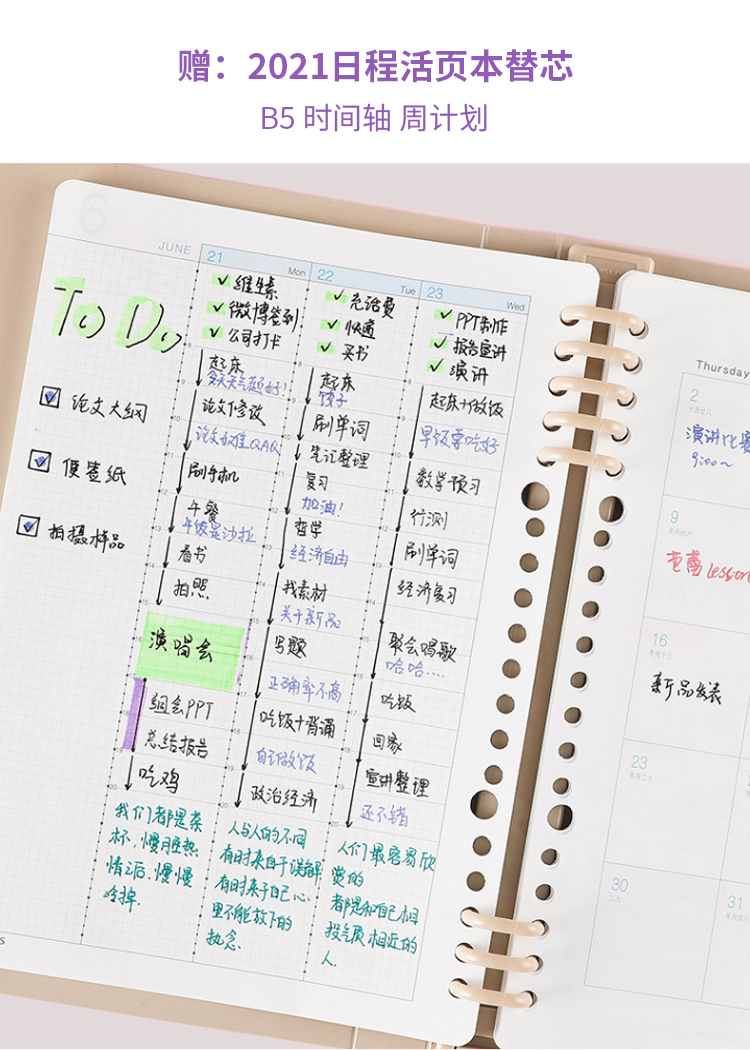 赠：2021日程活页本替芯
B5 时间轴 周计划
6
JUNE
To Do
论文大纲
便签纸
拍摄样品
21
Mon
维生素
微博签到
公司打卡
起床
论文修改
刷手机
午餐
午饭是沙拉
看书
拍照
演唱会
组会PPT
总结报告
吃鸡
我们都是茶
杯，慢脏热
情之后，慢慢
冷掉.
22
Tue
充话费
快递
买书
起床
饺子
刷单词
笔记整理
复习
加油！
哲学
经济自由
找素材
关于新品
写题
正确率不高
吃饭+背诵
自己做饭
政治经济
人与人的不同
有时来自于误解
有时来于自己心
里不能放下的
执念.
23
Wed
PPT制作
报告宣讲
演讲
起床+做饭
早饭要吃好
数学预习
行测
刷单词
经济复习
聚会唱歌
哈哈....
吃饭
回家
宣讲整理
还不错
人们最容易欣
赏的
都是和自己相
投气质相近的
人.
Thursday
2
十月廿八
演讲比赛
9:00~
9
冬月初六
芭蕾 lesson
16
冬月十三
新品发表
23
冬月二十
30
31